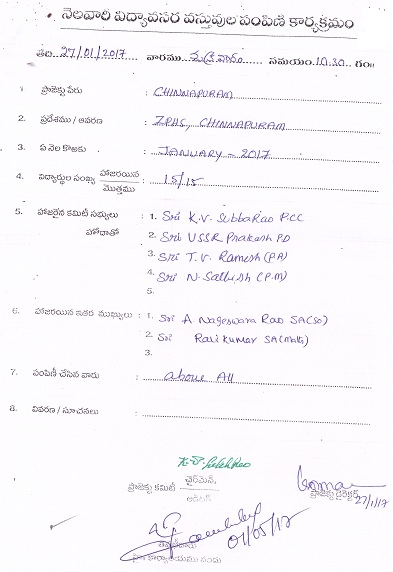 నెలవారి విద్యావసర వస్తువుల పంపిణి కార్యక్రమం
తేది 27/01/2017 వారము శుక్రవారం సమయం 10.30 గం॥
1. ప్రాజెక్టు పేరు : CHINNAPURAM
2. ప్రదేశము / ఆవరణ : ZPHS, CHINNAPURAM
3. ఏ నెల కొఱకు : JANUARY - 2017
4. విద్యార్థుల సంఖ్య హాజరయిన / మొత్తము : 15/15
5. హాజరైన కమిటీ సభ్యులు : 1. Sri K.V. SubbaRao PCC
హోదాతో 2. Sri USSR Prakash PD
3. Sri T.V. Ramesh (PA)
4. Sri N. Sathish (P.M)
5.
6. హాజరయిన ఇతర ముఖ్యులు : 1. Sri A Nageswara Rao SA(SS)
2. Sri Ravi Kumar SA(Maths)
3.
7. పంపిణీ చేసిన వారు : above All
8. వివరణ / సూచనలు :
ప్రాజెక్టు కమిటీ ఛైర్మెన్,
ఆడిటర్
ప్రాజెక్టు డైరెక్టర్
27/1/17
01/05/17
కార్యాలయము నందు